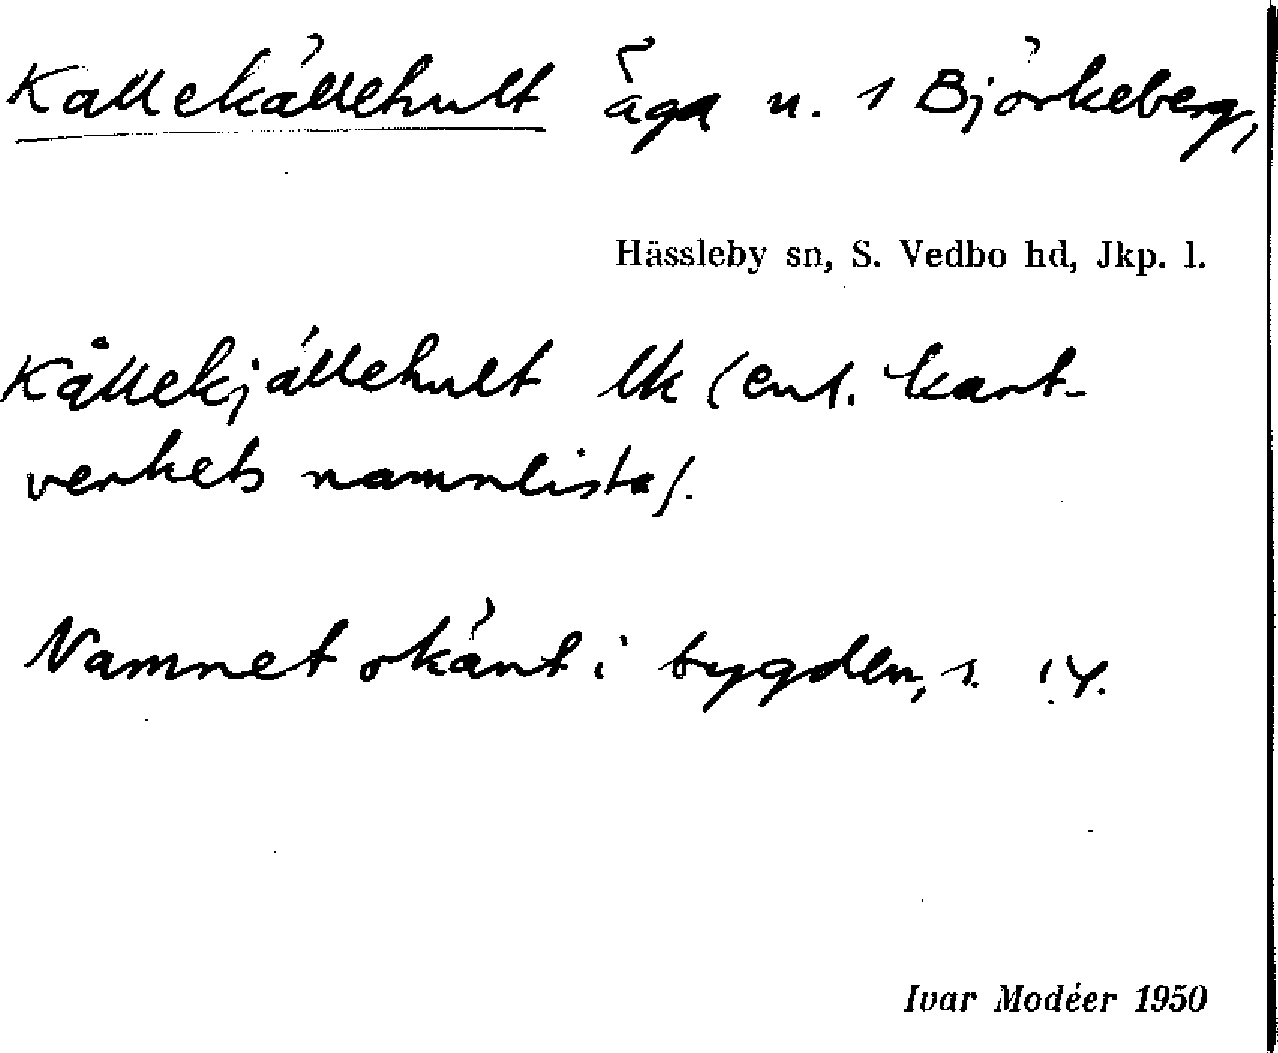 Kallekällehult äga u. 1 Björkeberg,
Hässleby sn, S. Vedbo hd, Jkp. l.
Kållekjällehult lk (enl. kart-
verkets namnlista).
Namnet okänt i bygden, s.
Ivar Modéer 1950